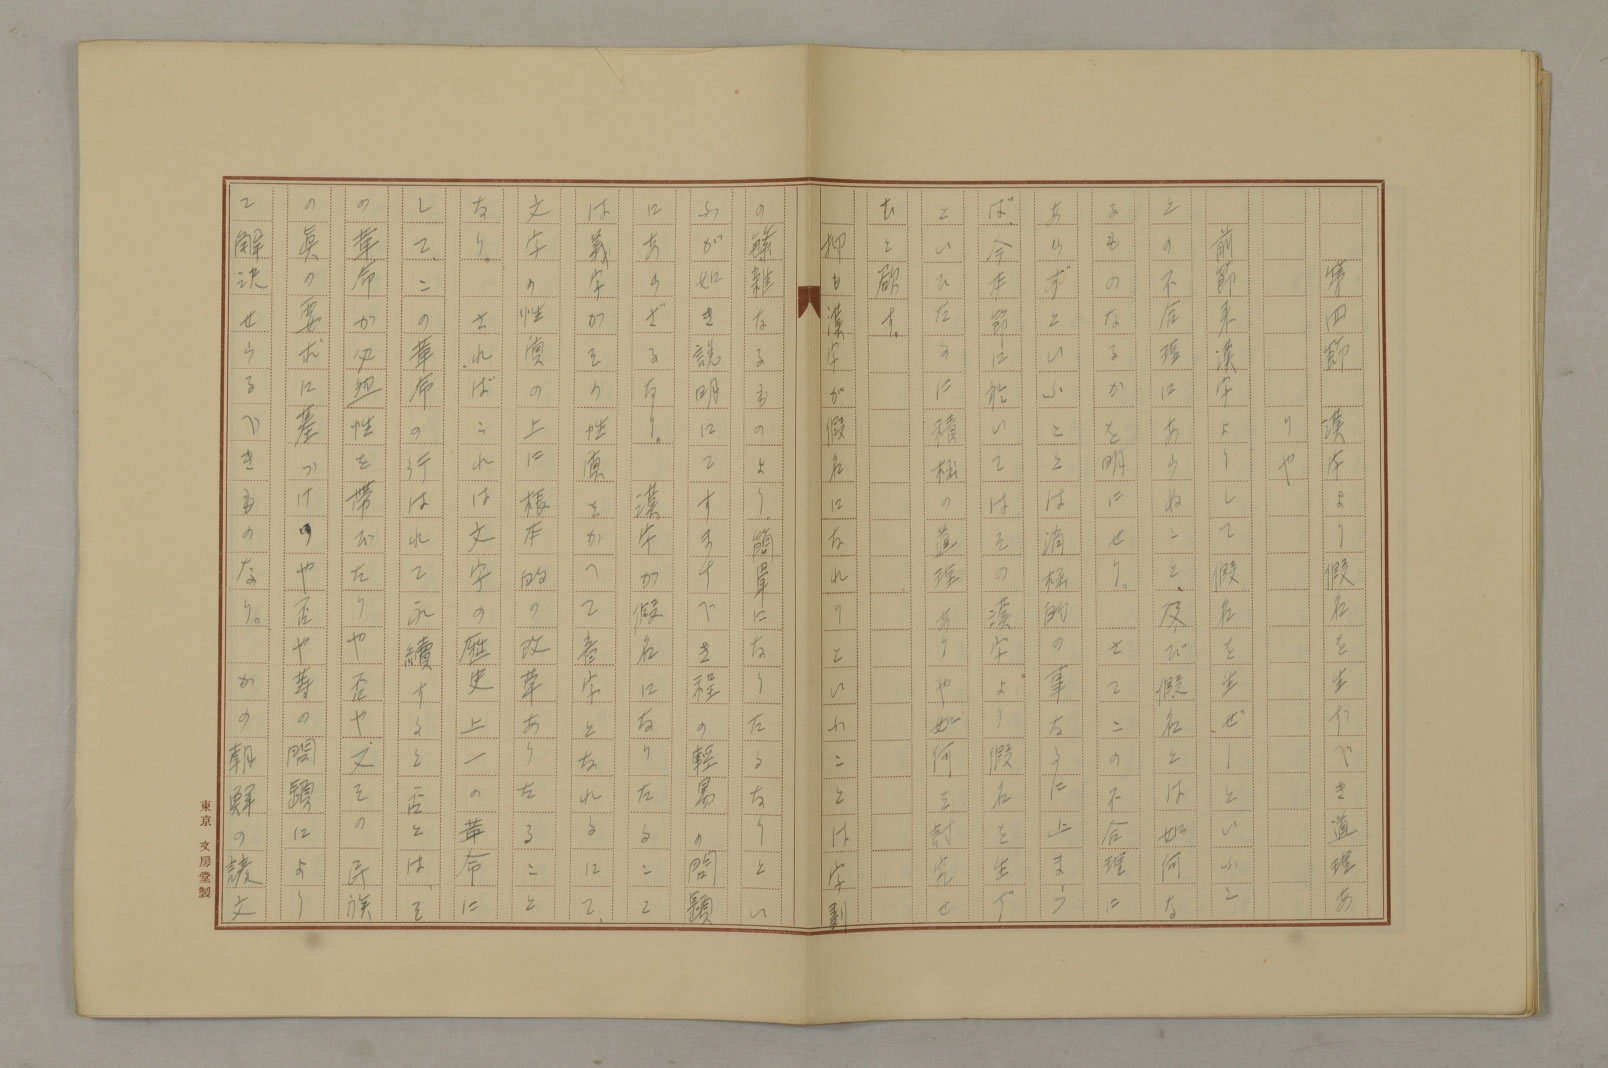 第四節　漢字より假名を生ずべき道理あ
りや
前節来漢字よりして假名を生ぜしといふこ
との不合理にあらぬこと、及び假名とは如何な
るものなるかを明にせり。さてこの不合理に
あらずといふことは消極的の事なるに止まら
ば、今本節に於いてはその漢字より假名を生ず
といひたるに積極の道理ありや如何を討究せ
むと欲す。
抑も漢字が假名になれりといふことは字劃
の繁雑なるものより、簡單になりたるなりとい
ふが如き説明にてすますべき程の輕易の問題
にあらざるなり。漢字が假名になりたること
は義字がその性質をかへて音字となれるにて、
文字の性質の上に根本的の改革ありたること
なり。さればこれは文字の歴史上一の革命に
して、この革命の行はれて永續すると否とは、そ
の革命が必然性を帯びたりや否や又その民族
の眞の要求に基づけりや否や等の問題により
て解決せらるべきものなり。かの朝鮮の諺文
東京　文房堂製